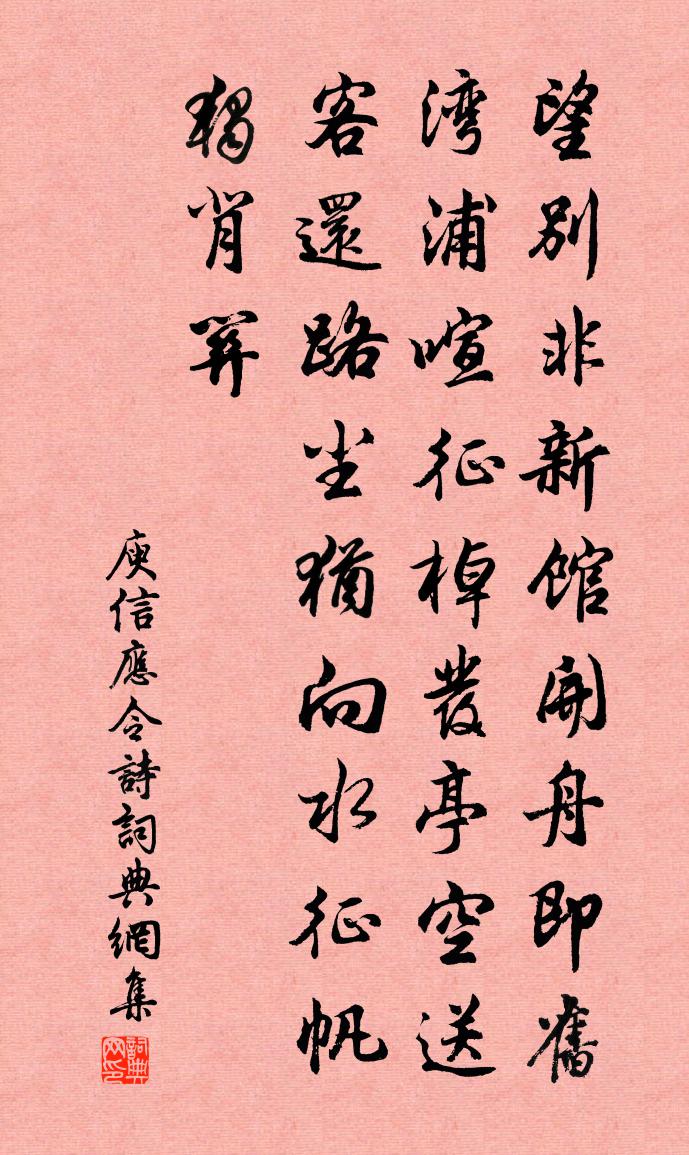 望別非新館開舟即舊
湾浦喧征棹發亭空送
客還路尘猶向水征帆
獨背关
庾信應令詩詞典網集
詞典网印